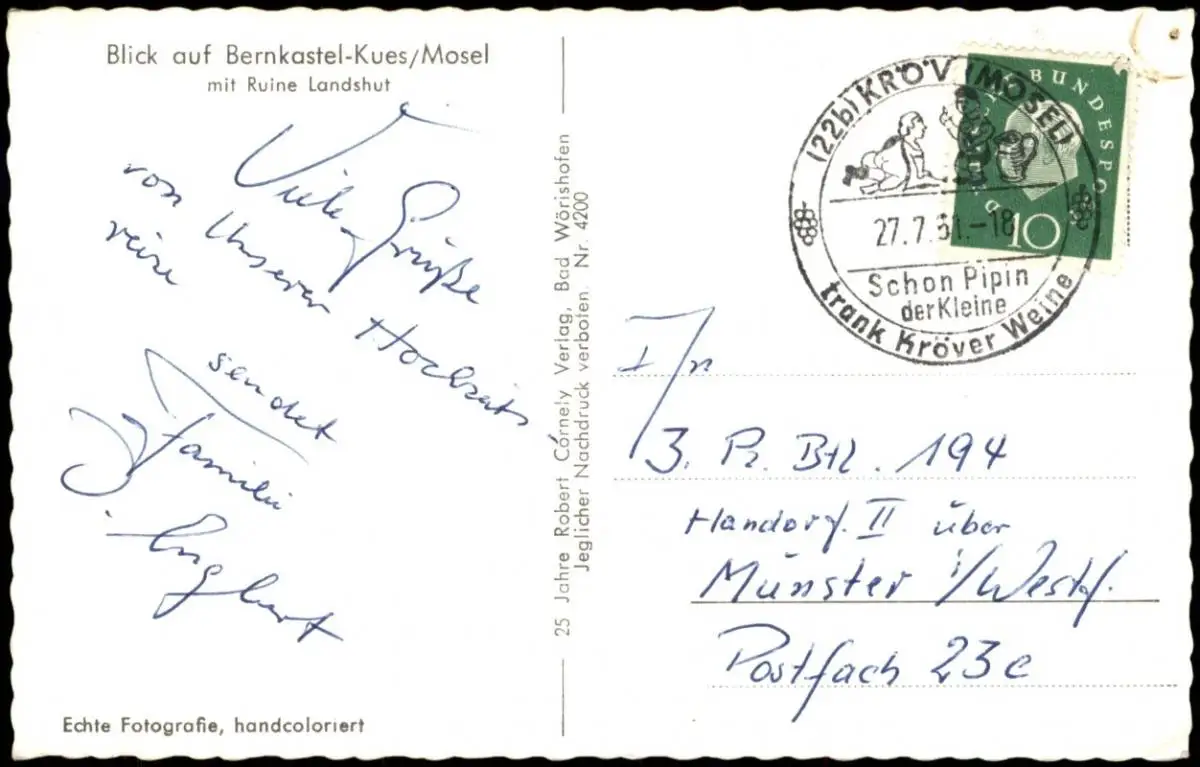 Blick auf Bernkastel-Kues/Mosel
mit Ruine Landshut
Viele Grüße
von Unserer Hochzeits
reise
sendet
Familie
Englert
Echte Fotografie, handcoloriert
25 Jahre Robert Córnely Verlag, Bad Wörishofen
Jeglicher Nachdruck verboten. Nr. 4200
(22b) KRÖV (MOSEL)
27.7.61.-18
Schon Pipin
der Kleine
trank Kröver Weine
BUNDESPO
10
I/n
3. Pz. Btl. 194
Handorf. II über
Münster i/Westf.
Postfach 23c